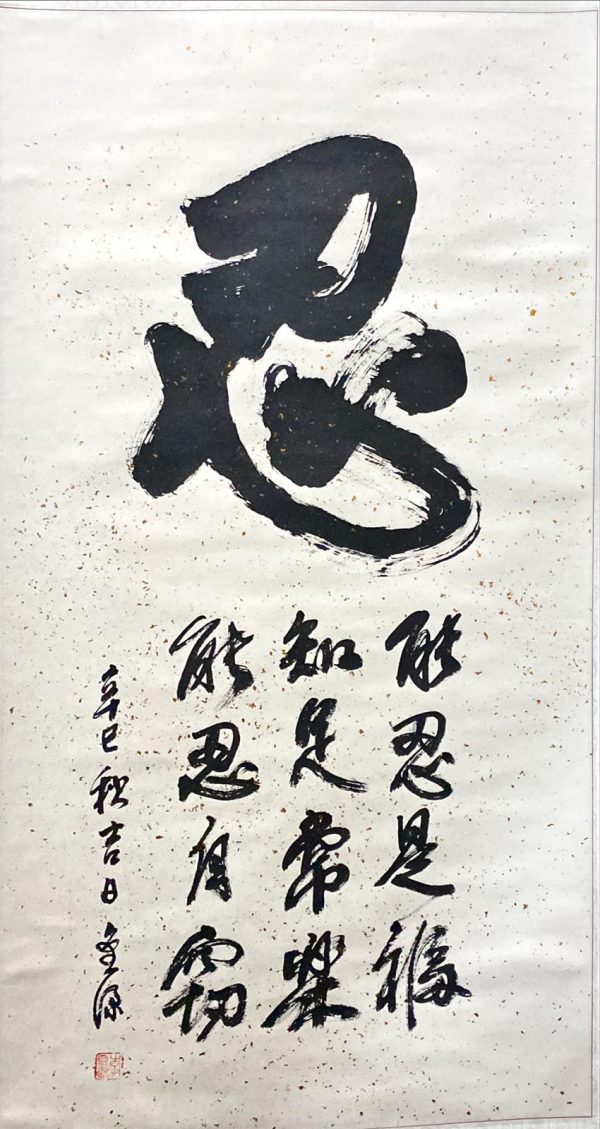 忍
能忍是福
知足常樂
能忍自
辛巳秋吉日